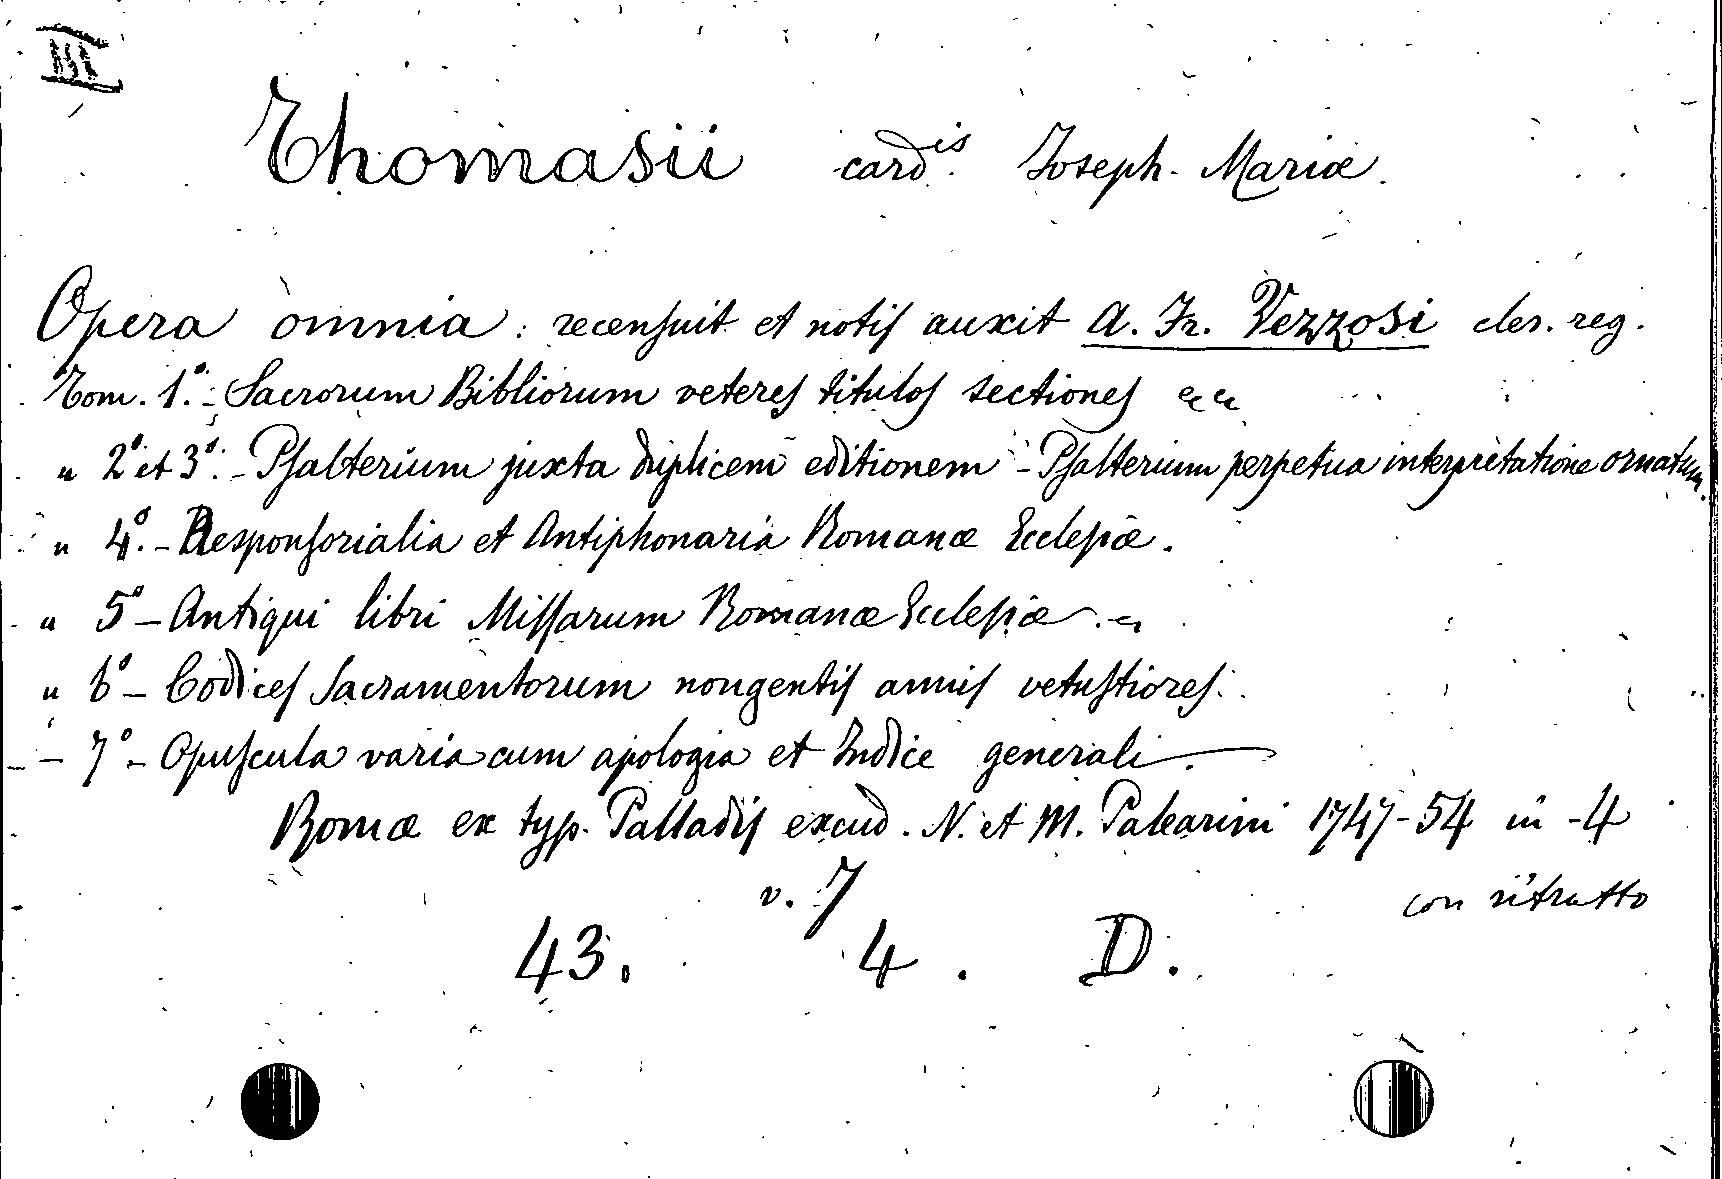 III
Thomasii cardis. Joseph. Mariæ.
Opera omnia: recensuit et notis auxit A. Fr. Vezzosi cler. reg.
Tom. 1.º - Sacrorum Bibliorum veteres titulos sectiones
" 2º et 3º. - Psalterium juxta duplicem editionem - Psalterium perpetua interpretatione ornatum.
" 4º. - Responsorialia et Antiphonaria Romanæ Ecclesiæ.
" 5º - Antiqui libri Missarum Romanæ Ecclesiæ
" 6º - Codices Sacramentorum nongentis annis vetustiores.
- 7º - Opuscula varia cum apologia et Indice generali.
Romæ ex typ. Palladis excud. N. et M. Palearini 1747-54 in-4
v. 7 con ritratto
43. 4. D.